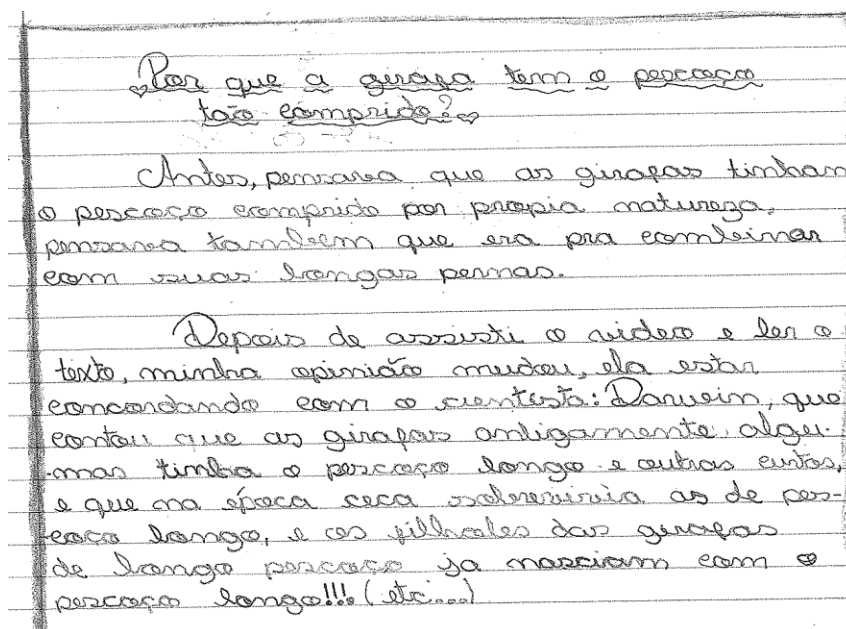 Por que a girafa tem o pescoço
tão comprido?
Antes, pensava que as girafas tinham
o pescoço comprido por propia natureza,
pensava também que era pra combinar
com suas longas pernas.
Depois de assisti o video e ler o
texto, minha opinião mudou, ela estar
concordando com o cientista: Darwein, que
contou que as girafas antigamente algu-
mas tinha o pescoço longo e outras curtos,
e que na época ceca sobrevivia as de pes-
coço longo, e os filhotes das girafas
de longo pescoço ja nasciam com o
pescoço longo!!! (etc...)